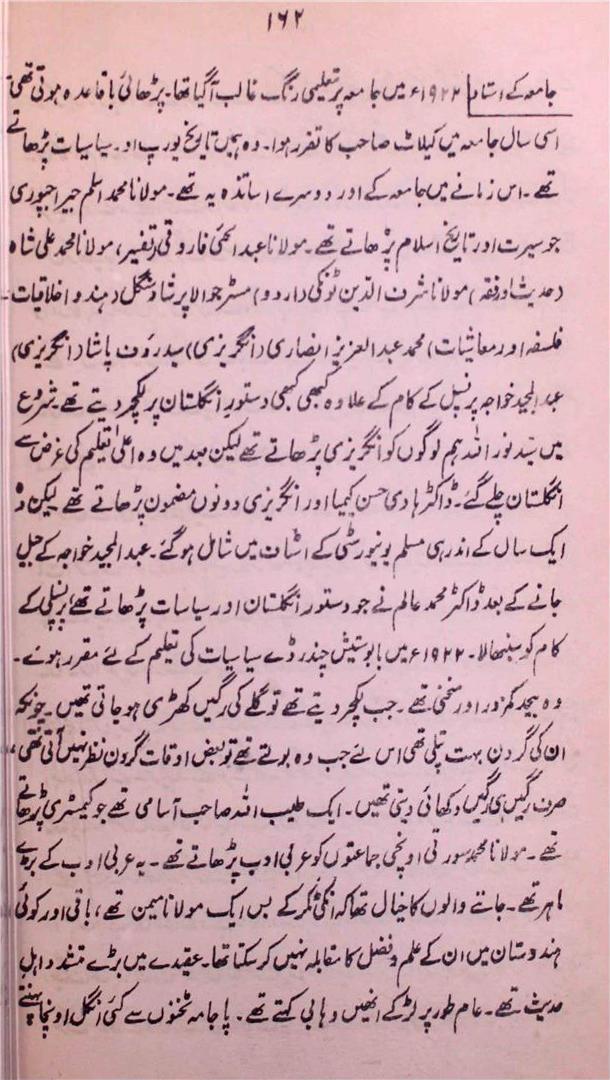 ۱۶۲
جامعہ کے استاد | ۱۹۲۲ء میں جامعہ پر تعلیمی رنگ غالب آگیا تھا۔ پڑھائی باقاعدہ ہوتی تھی
اسی سال جامعہ میں کیلاٹ صاحب کا تقرر ہوا۔ وہ ہمیں تاریخ یورپ اور سیاسیات پڑھاتے
تھے۔ اس زمانے میں جامعہ کے اور دوسرے اساتذہ یہ تھے۔ مولانا محمد اسلم جیراجپوری
جو سیرت اور تاریخ اسلام پڑھاتے تھے۔ مولانا عبدالحئی فاروقی (تفسیر) مولانا محمد علی شاہ
(حدیث اور فقہ) مولانا شرف الدین ٹونکی (اردو) مسٹر جوالا پرشاد سنگل (ہندو اخلاقیات۔
فلسفہ اور معاشیات) محمد عبدالعزیز انصاری (انگریزی) سید رؤف پاشا (انگریزی)
عبدالمجید خواجہ پرنسپل کے کام کے علاوہ کبھی کبھی دستور انگلستان پر لکچر دیتے تھے۔ شروع
میں سید نور اللہ ہم لوگوں کو انگریزی پڑھاتے تھے لیکن بعد میں وہ اعلیٰ تعلیم کی غرض سے
انگلستان چلے گئے۔ ڈاکٹر ہادی حسن کیمیا اور انگریزی دونوں مضمون پڑھاتے تھے لیکن وہ
ایک سال کے اندر ہی مسلم یونیورسٹی کے اسٹاف میں شامل ہو گئے۔ عبدالمجید خواجہ کے جیل
جانے کے بعد ڈاکٹر محمد عالم نے جو دستور انگلستان اور سیاسات پڑھاتے تھے، پرنسپلی کے
کام کو سنبھالا۔ ۱۹۲۲ء میں بابو ستیش چندر ڈے سیاسیات کی تعلیم کے لئے مقرر ہوئے۔
وہ بیحد کمزور اور منحنی تھے۔ جب لکچر دیتے تھے تو گلے کی رگیں کھڑی ہو جاتی تھیں۔ چونکہ
ان کی گردن بہت پتلی تھی اس لئے جب وہ بولتے تھے تو بعض اوقات گردن نظر نہیں آتی تھی،
صرف رگیں ہی رگیں دکھائی دیتی تھیں۔ ایک طیب اللہ صاحب آسامی تھے جو کیمسٹری پڑھاتے
تھے۔ مولانا محمد سورتی اونچی جماعتوں کو عربی ادب پڑھاتے تھے۔ یہ عربی ادب کے بڑے
ماہر تھے۔ جاننے والوں کا خیال تھا کہ انکی ٹکر کے بس ایک مولانا میمن تھے، باقی اور کوئی
ہندوستان میں ان کے علم و فضل کا مقابلہ نہیں کر سکتا تھا۔ عقیدے میں بڑے متشدد اہل
حدیث تھے۔ عام طور پر لڑکے انھیں وہابی کہتے تھے۔ پاجامہ ٹخنوں سے کئی انگل اونچا پہنتے